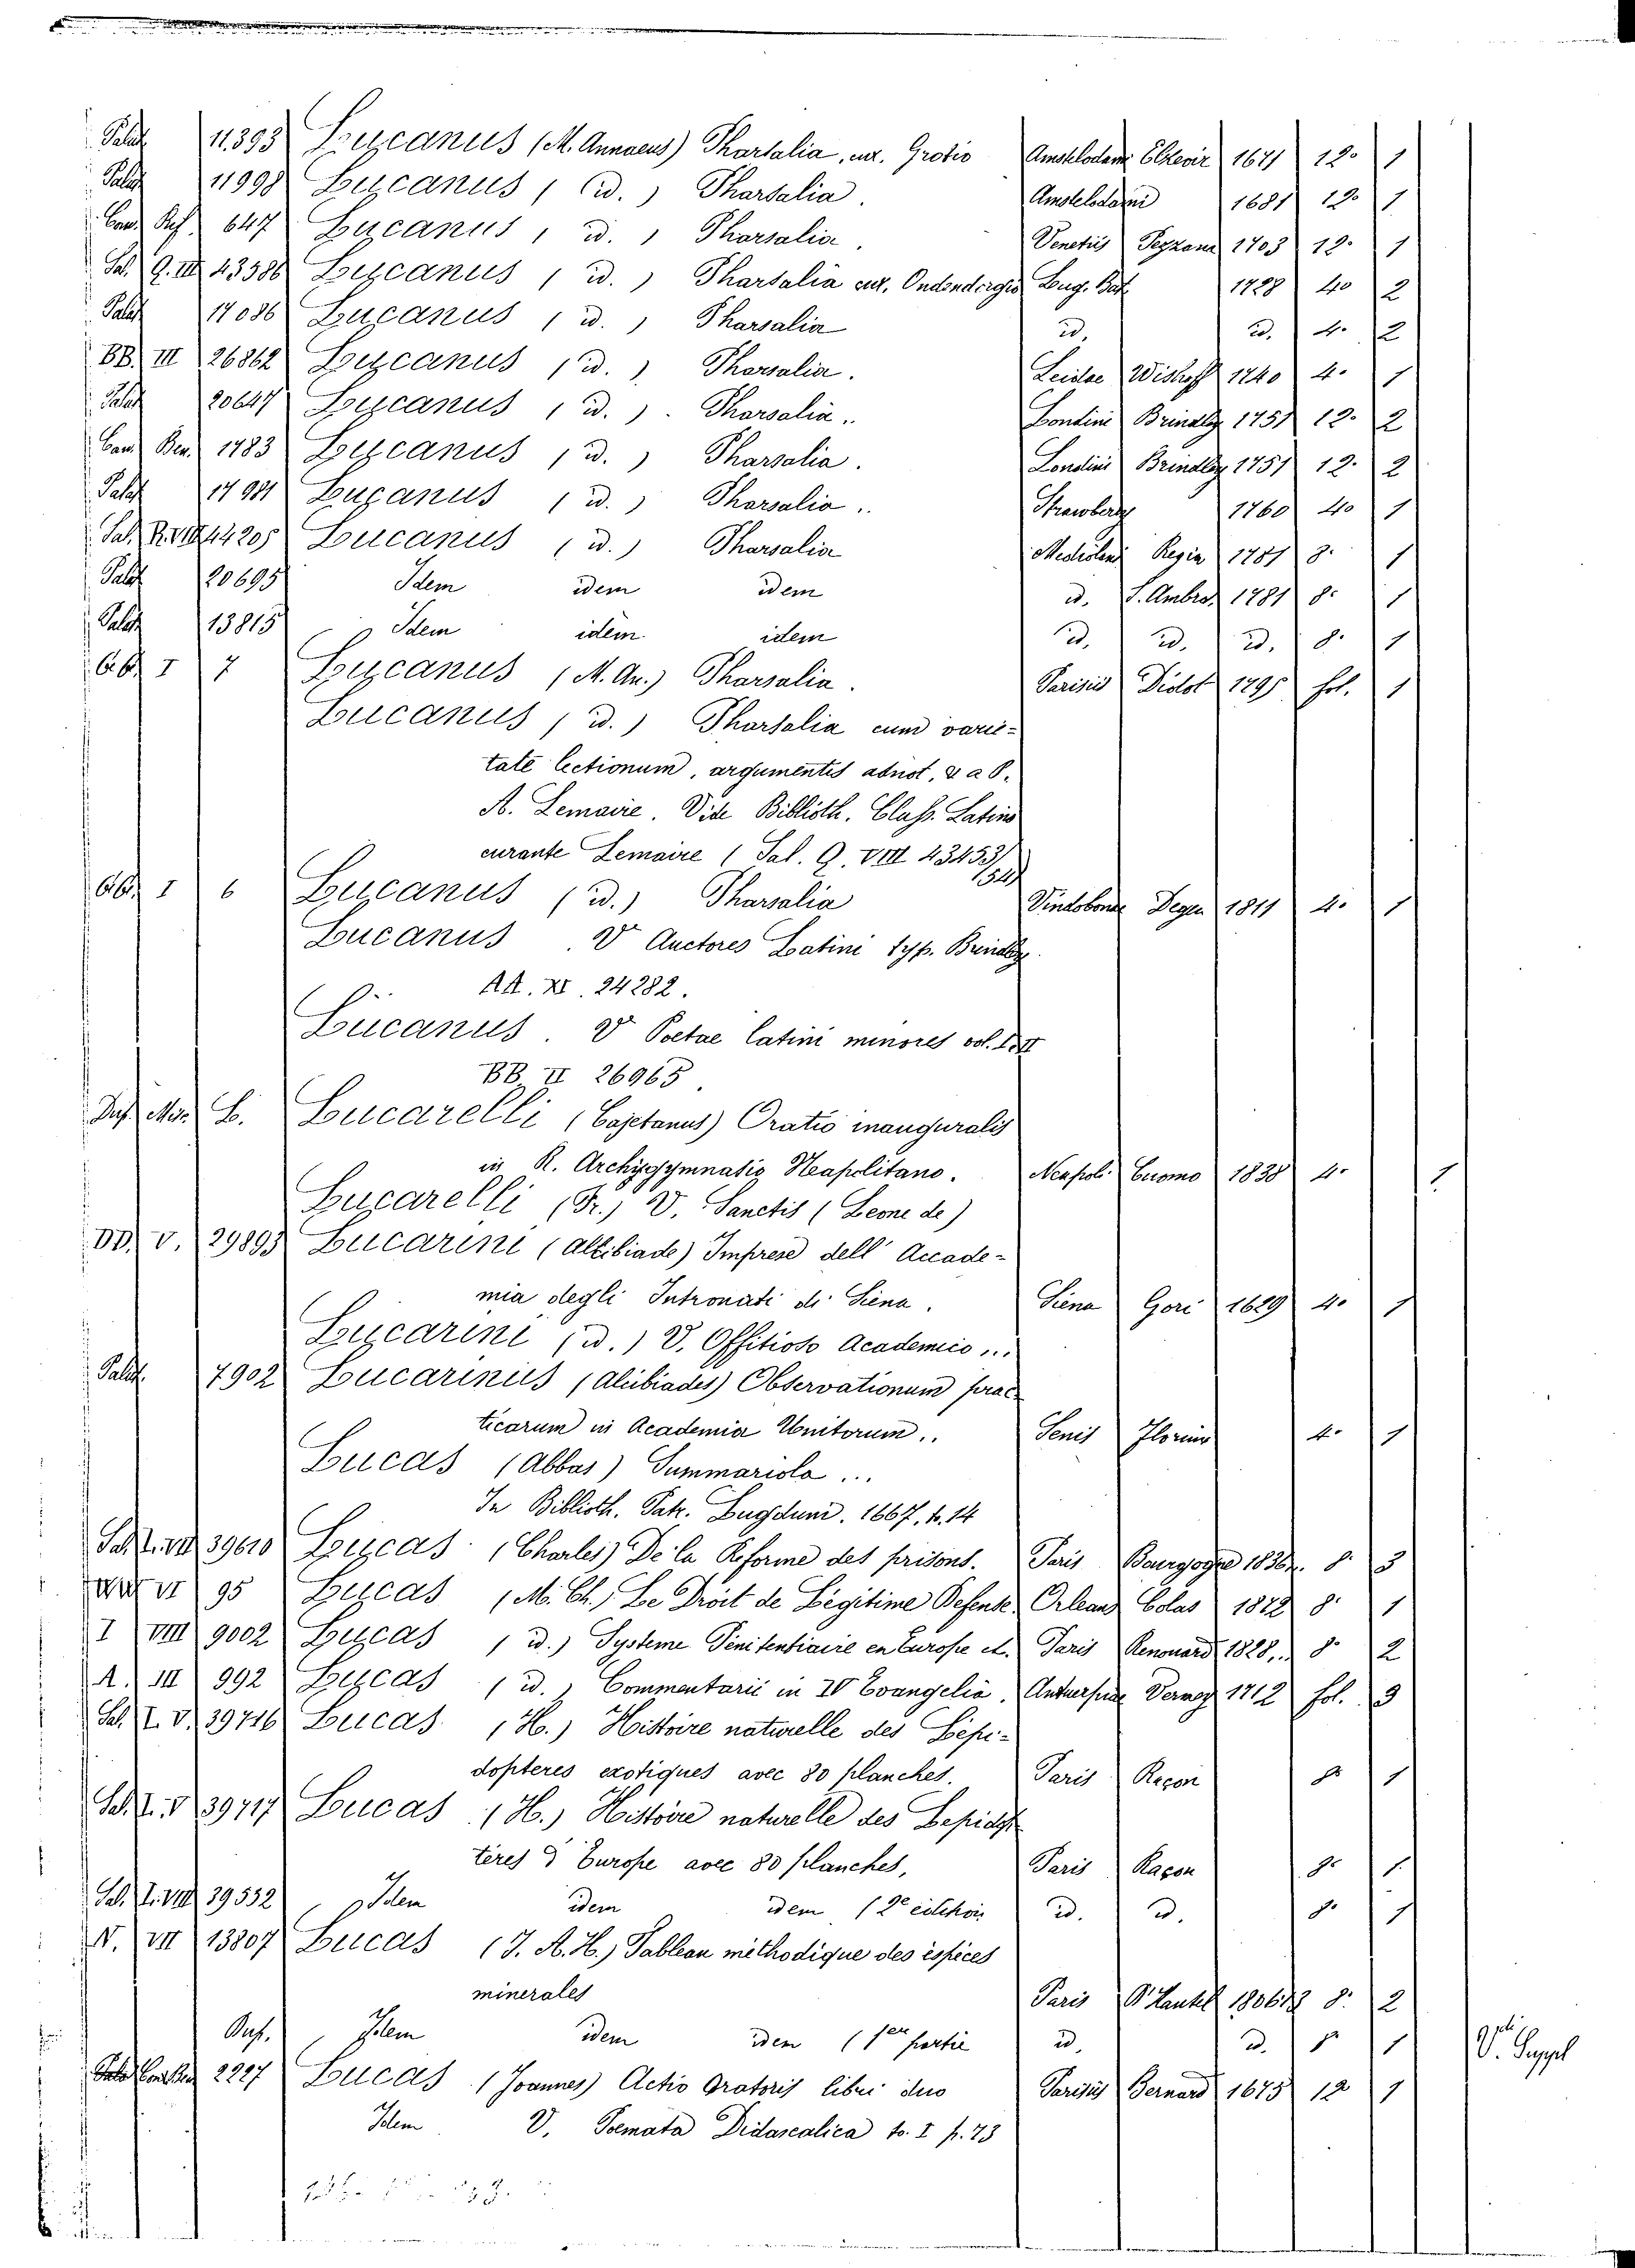 Palat. 11.393 Lucanus (M. Annaeus) Pharsalia, cur. Grotio Amstelodami Elzevir 1671 12.o 1
Palat. 11998 Lucanus (id.) Pharsalia. Amstelodami 1681 12.o 1
647 Lucanus, id., Pharsalia. Venetiis Pezzana 1703 12.o 1
Sal. Q. III 43586 Lucanus (id.) Pharsalia cur. Lug. Bat. 1728 4o 2
Palat. 17086 Lucanus (id.) Pharsalia id. id. 4.o 2
BB. III 26862 Lucanus (id.) Pharsalia. Leidae Wishoff 1740 4.o 1
Palat 20647 Lucanus (id.) Pharsalia.. Londini Brindley 1751 12.o 2
Ben. 1783 Lucanus (id.) Pharsalia. Londini Brindley 1751 12.o 2
Palat Lucanus (id.) Pharsalia.. Strawberry 1760 4o 1
44205 Lucanus (id.) Pharsalia Mediolani Regia 1781 8.o 1
Palat 20695 Idem idem idem id. S. Ambros. 1781 8.o 1
Palat 13815 Idem idem idem id. id. id. 8.o 1
I 7 Lucanus (M. An.) Pharsalia. Parisiis Didot 1795 fol. 1
Lucanus (id.) Pharsalia cum varie-
tate lectionum, argumentis adnot,
A. Lemaire. Vide Biblioth. Class. Latina
curante Lemaire (Sal. Q. VIII 43453/54)
I 6 Lucanus (id.) Pharsalia Vindobonae Degen 1811 4.o 1
Lucanus. V Auctores Latini typ. Brindley
AA. XI. 24282.
Lucanus. V Poetae latini minores vol.
BB. II 26965.
L. Lucarelli (Cajetanus) Oratio inauguralis
in R. Archigymnasio Neapolitano. Neapoli Cuomo 1838 4.o 1
Lucarelli (Fr.) V. Sanctis (Leone de)
DD. V. 29893 Lucarini (Alcibiade) Imprese dell' Accade-
mia degli Intronati di Siena. Siena Gori 1629 4.o 1
Lucarini (id.) V. Offitioso Academico ...
Palat. 7902 Lucarinus (Alcibiades) Observationum prac-
ticarum in Academia Unitorum.. Senis Florim 4.o 1
Lucas (Abbas) Summariola...
In Biblioth. Patr. Lugduni. 1667. t. 14
39610 Lucas (Charles) De la Reforme des prisons. Paris Bourgogne 8.o 3
VI 95 Lucas (M. Ch.) Le Droit de Légitime Defense. Orleans Colas 8.o 1
I VIII 9002 Lucas (id.) Systeme Pénitentiaire en Europe et. Paris Renouard 1828.. 8.o 2
A. III 992 Lucas (id.) Commentarii in IV Evangelia. Antuerpiae 1712 fol. 3
Sal. L. V. 39716 Lucas (H.) Histoire naturelle des Lépi-
dopteres exotiques avec 80 planches. Paris Raçon 8.o 1
Sal. L. V 39717 Lucas (H.) Histoire naturelle des Lepidop
teres d'Europe avec 80 planches, Paris Raçon 8.o 1
Sal. L. VIII 39532 Idem idem idem (2e edition id. id. 8.o 1
N. VII 13807 Lucas (J. A. H.) Tableau méthodique des éspéces
minerales Paris 8.o 2
Idem idem idem (1ere partie id. id. 1
2227 Lucas (Joannes) Actio Oratoris libri duo Parisiis Bernard 1675 12 1
Idem V. Poemata Didascalica to. I p. 73